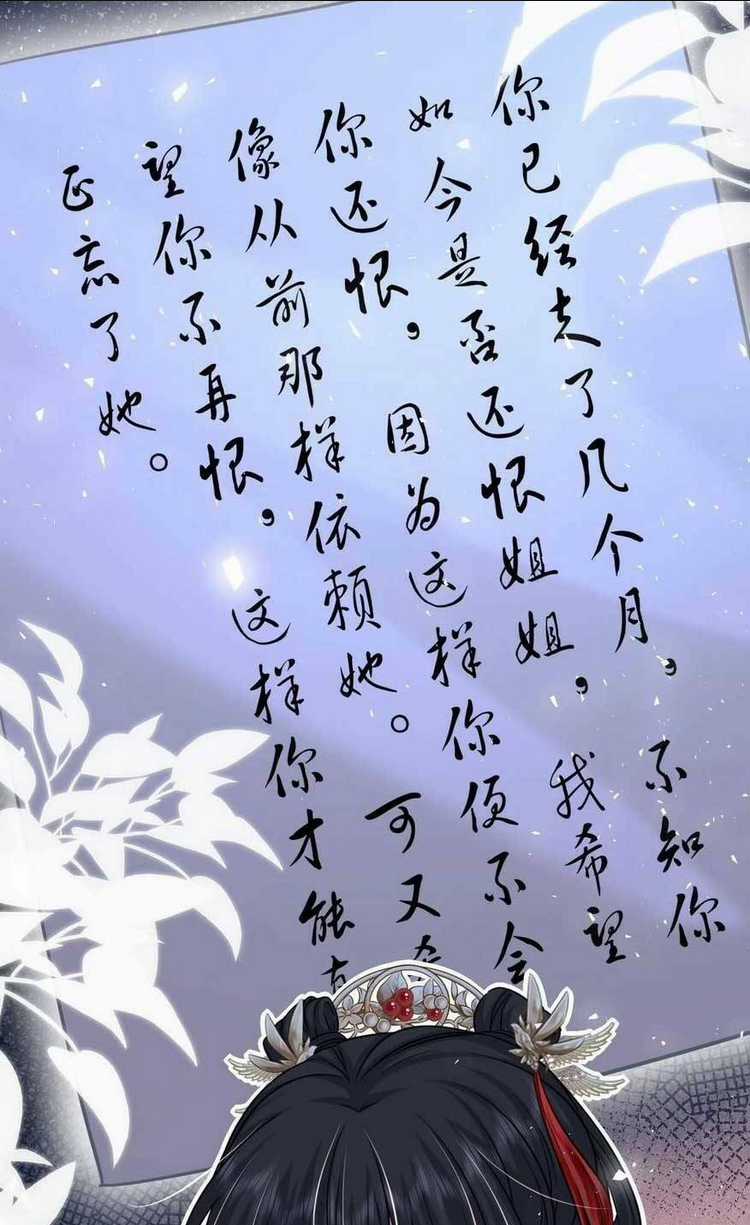 你已经走了几个月，不知你
如今是否还恨姐姐，我希望
你还恨，因为这样你便不会
像从前那样依赖她。可又希
望你不再恨，这样你才能真
正忘了她。